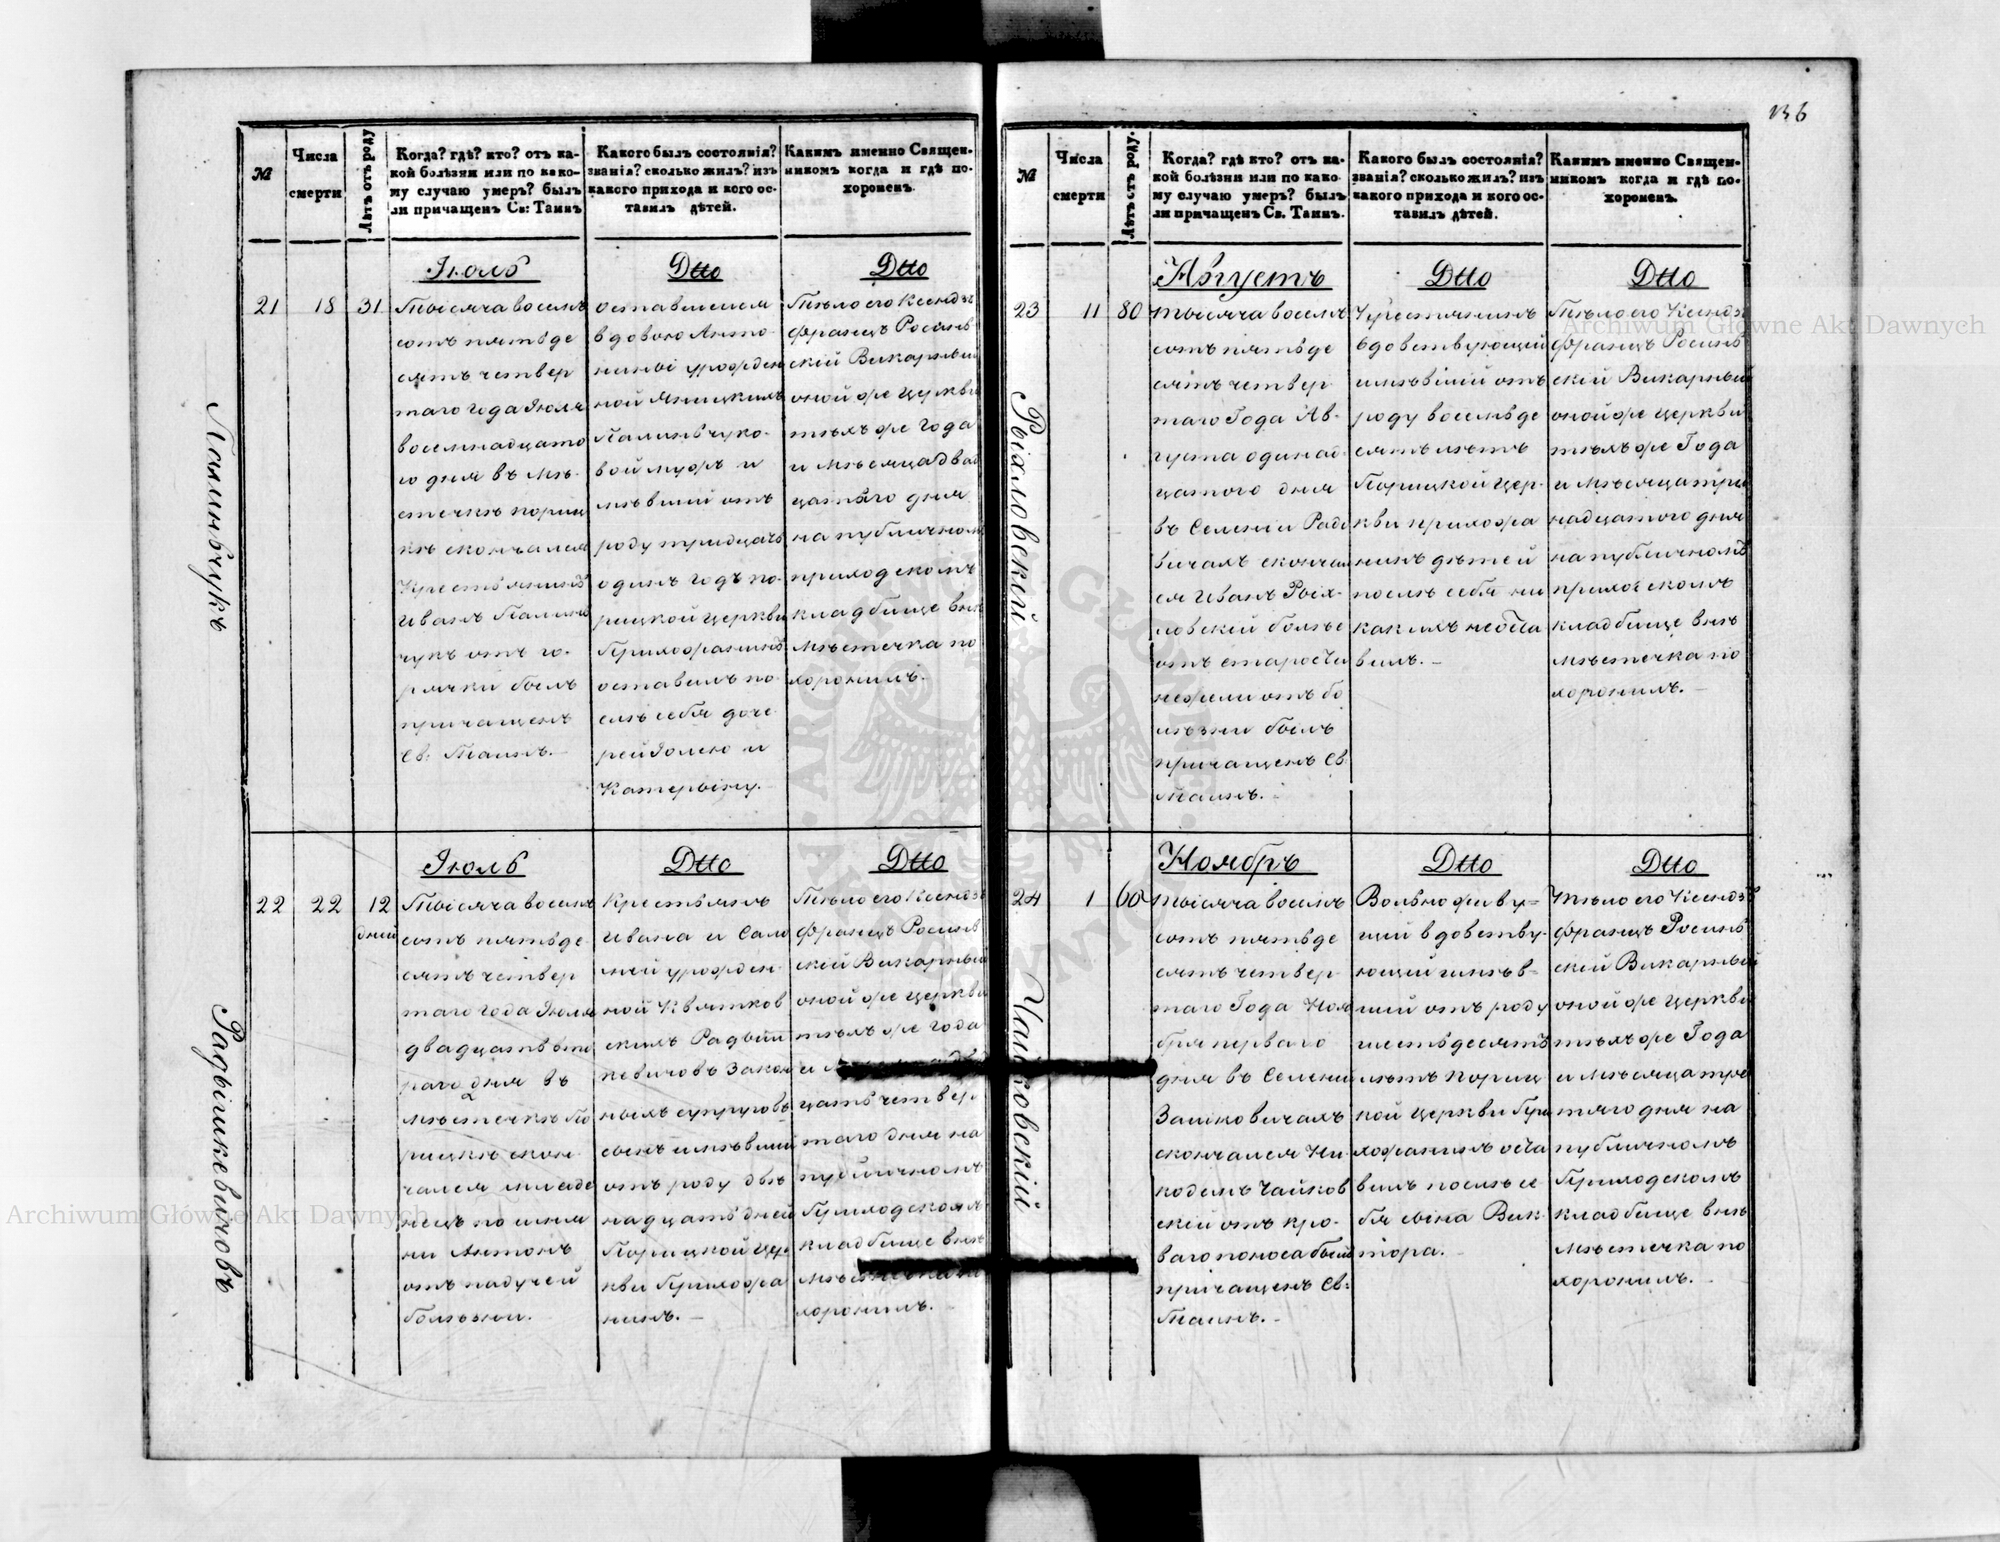 136
№
Числа
смерти
Лѣтъ отъ роду
Когда? гдѣ? кто? отъ ка-
кой болѣзни или по како-
му случаю умеръ? былъ
ли причащенъ Св: Таинъ
Какого былъ состоянія?
званія? сколько жилъ? изъ
какого прихода и кого ос-
тавилъ дѣтей.
Какимъ именно Священ-
никомъ когда и гдѣ по-
хороненъ.
Июль
21
18
31
Тысяча восемь
сотъ пятьде
сятъ четвер
таго года Июля
восемнадцато
го дня въ мѣ-
стечкѣ Пориц
кѣ скончался
Крестьянинъ
Иванъ Палинь
чукъ отъ го-
рячки былъ
причащенъ
Св: Таинъ.
Dtto
Оставшися
вдовою Анто
ниныі урожден
ной Яницкихъ
Палиньчуко-
вой мужъ и
мѣвший отъ
роду тридцать
одинъ годъ По-
рицкой церкви
Прихожанинъ
оставилъ по-
слѣ себя доче
рей Юлию и
Катерыну.
Dtto
Тѣло его Ксендзъ
Францъ Росинь
скій Викарный
оной же церкви
тѣхъ же года
и мѣсяца двад
цатаго дня
на публичномъ
приходскомъ
кладбище внѣ
мѣстечка по
хоронилъ.
Палиньчукъ
Июль
22
22
12
дней
Тысяча восемь
сотъ пятьде
сятъ четвер
таго года Июля
двадцать вто
раго дня въ
мѣстечкѣ По
рицкѣ скон
чался младе
нецъ по имя
ни Антонъ
отъ падучей
болѣзни.
Dtto
Крестьянъ
Ивана и Сало
меи урожден-
ной Квятков
скихъ Радыш
кевичовъ Закон
ныхъ супруговъ
сынъ имѣвший
отъ роду двѣ
надцать дней
Порицкой Цер
кви Прихожа
нинъ.
Dtto
Тѣло его Ксендзъ
Францъ Росинь
скій Викарный
оной же церкви
тѣхъ же года
цать четвер-
таго дня на
публичномъ
Приходскомъ
кладбище внѣ
хоронилъ.
Радышкевичовъ
№
Числа
смерти
Лѣтъ отъ роду.
Когда? гдѣ кто? отъ ка-
кой болѣзни или по како-
му случаю умеръ? былъ
ли причащенъ Св. Таинъ.
Какого былъ состоянія?
званія? сколько жилъ? изъ
какого прихода и кого ос-
тавилъ дѣтей.
Какимъ именно Священ-
никомъ когда и гдѣ по-
хороненъ.
Августъ
23
11
80
Тысяча восемь
сотъ пятьде
сятъ четвер
таго Года Ав-
густа одинад
цатого дня
въ Селеніи Рад
бичахъ скончал
ся Иванъ Рых-
ловскій
отъ старости
нежели отъ бо
лѣзни былъ
причащенъ Св
Таинъ.
Dtto
Крестянинъ
вдовствующій
имѣвшій отъ
роду восемьде
сятъ лѣтъ
Порицкой Цер-
кви прихожа
нинъ дѣтей
послѣ себя ни
какихъ неоста
вилъ.
Dtto
Тѣло его Ксендзъ
Францъ Росинь
скій Викарный
оной же церкви
тѣхъ же Года
и мѣсяца три
надцатого дня
на публичномъ
приходскомъ
кладбище внѣ
мѣстечка по
хоронилъ.
Рыхловскій
Ноябрь
24
1
60
Тысяча восемь
сотъ пятьде
сятъ четвер-
таго Года Ноя
бря перваго
дня въ Селеніи
Зашковичахъ
скончался Ни
кодемъ Чайков
скій отъ кро-
ваго поноса былъ
причащенъ Св:
Таинъ.
Dtto
Вольно живу=
щий вдовству-
ющий имѣв=
ший отъ роду
шестьдесятъ
лѣтъ Пориц
кой церкви При
хожанинъ оста
вилъ послѣ се
бя сына Вик
тора.
Dtto
Тѣло его Ксендзъ
Францъ Росинь
скій Викарный
оной же церкви
тѣхъ же Года
и мѣсяца тре
тяго дня на
публичномъ
Приходскомъ
кладбище внѣ
мѣстечка по
хоронилъ.
Чайковскій
Archiwum Główne Akt Dawnych
Archiwum Główne Akt Dawnych